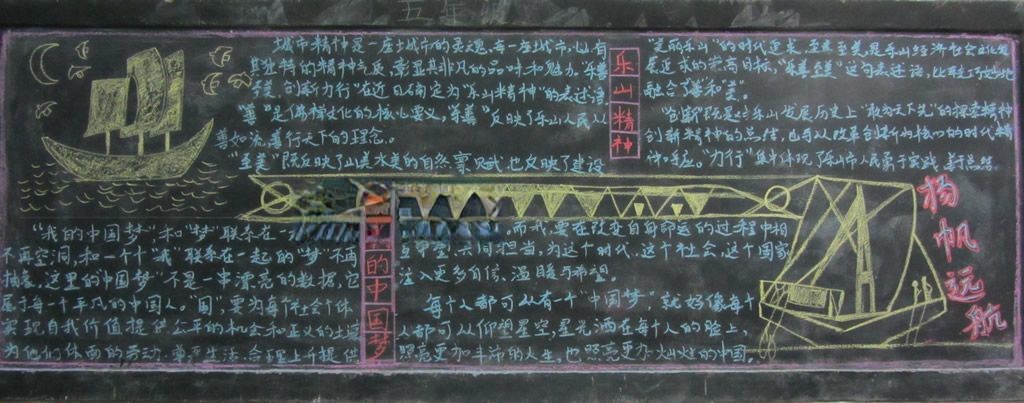 五年
城市精神是一座城市的灵魂,每一座城市,也有
其独特的精神气质,彰显其非凡的品味和魅力。"乐善
至美 创新力行"在近日确定为"乐山精神"的表述语。
"善"是佛禅文化的核心要义,"乐善"反映了乐山人民从
善如流,善行天下的理念。
"至美"既反映了山美水美的自然禀赋,也反映了建设
乐山精神
"美丽乐山"的时代追求,至善至美,是乐山经济社会
发展追求的崇高目标,"乐善至美"这句表述语,比较巧妙地
融合了善和美。
"创新"既是对乐山发展历史上"敢为天下先"的探索精神
创新精神的总结,也与以改革创新为核心的时代精
神呼应。"力行"集中体现了乐山市人民勇于实践,善于总结
杨帆远航
"我的中国梦",和"梦"联系在一
不再空洞,和一个个"我"联系在一起的"梦"不再
抽象。这里的"中国梦"不是一串漂亮的数据,它
属于每一个平凡的中国人。"国",要为每个社会个体
实现自我价值提供公平的机会和正义的土壤
为他们体面的劳动、尊严生活、合理上升提供
的中国梦
而我,要在改变自身命运的过程中相
共同担当,为这个时代、这个社会、这个国家
注入更多自信、温暖与希望。
每个人都可以有一个"中国梦",就好像每个
人都可以仰望星空,星光洒在每个人的脸上,
照亮更加丰沛的人生,也照亮更加灿烂的中国。